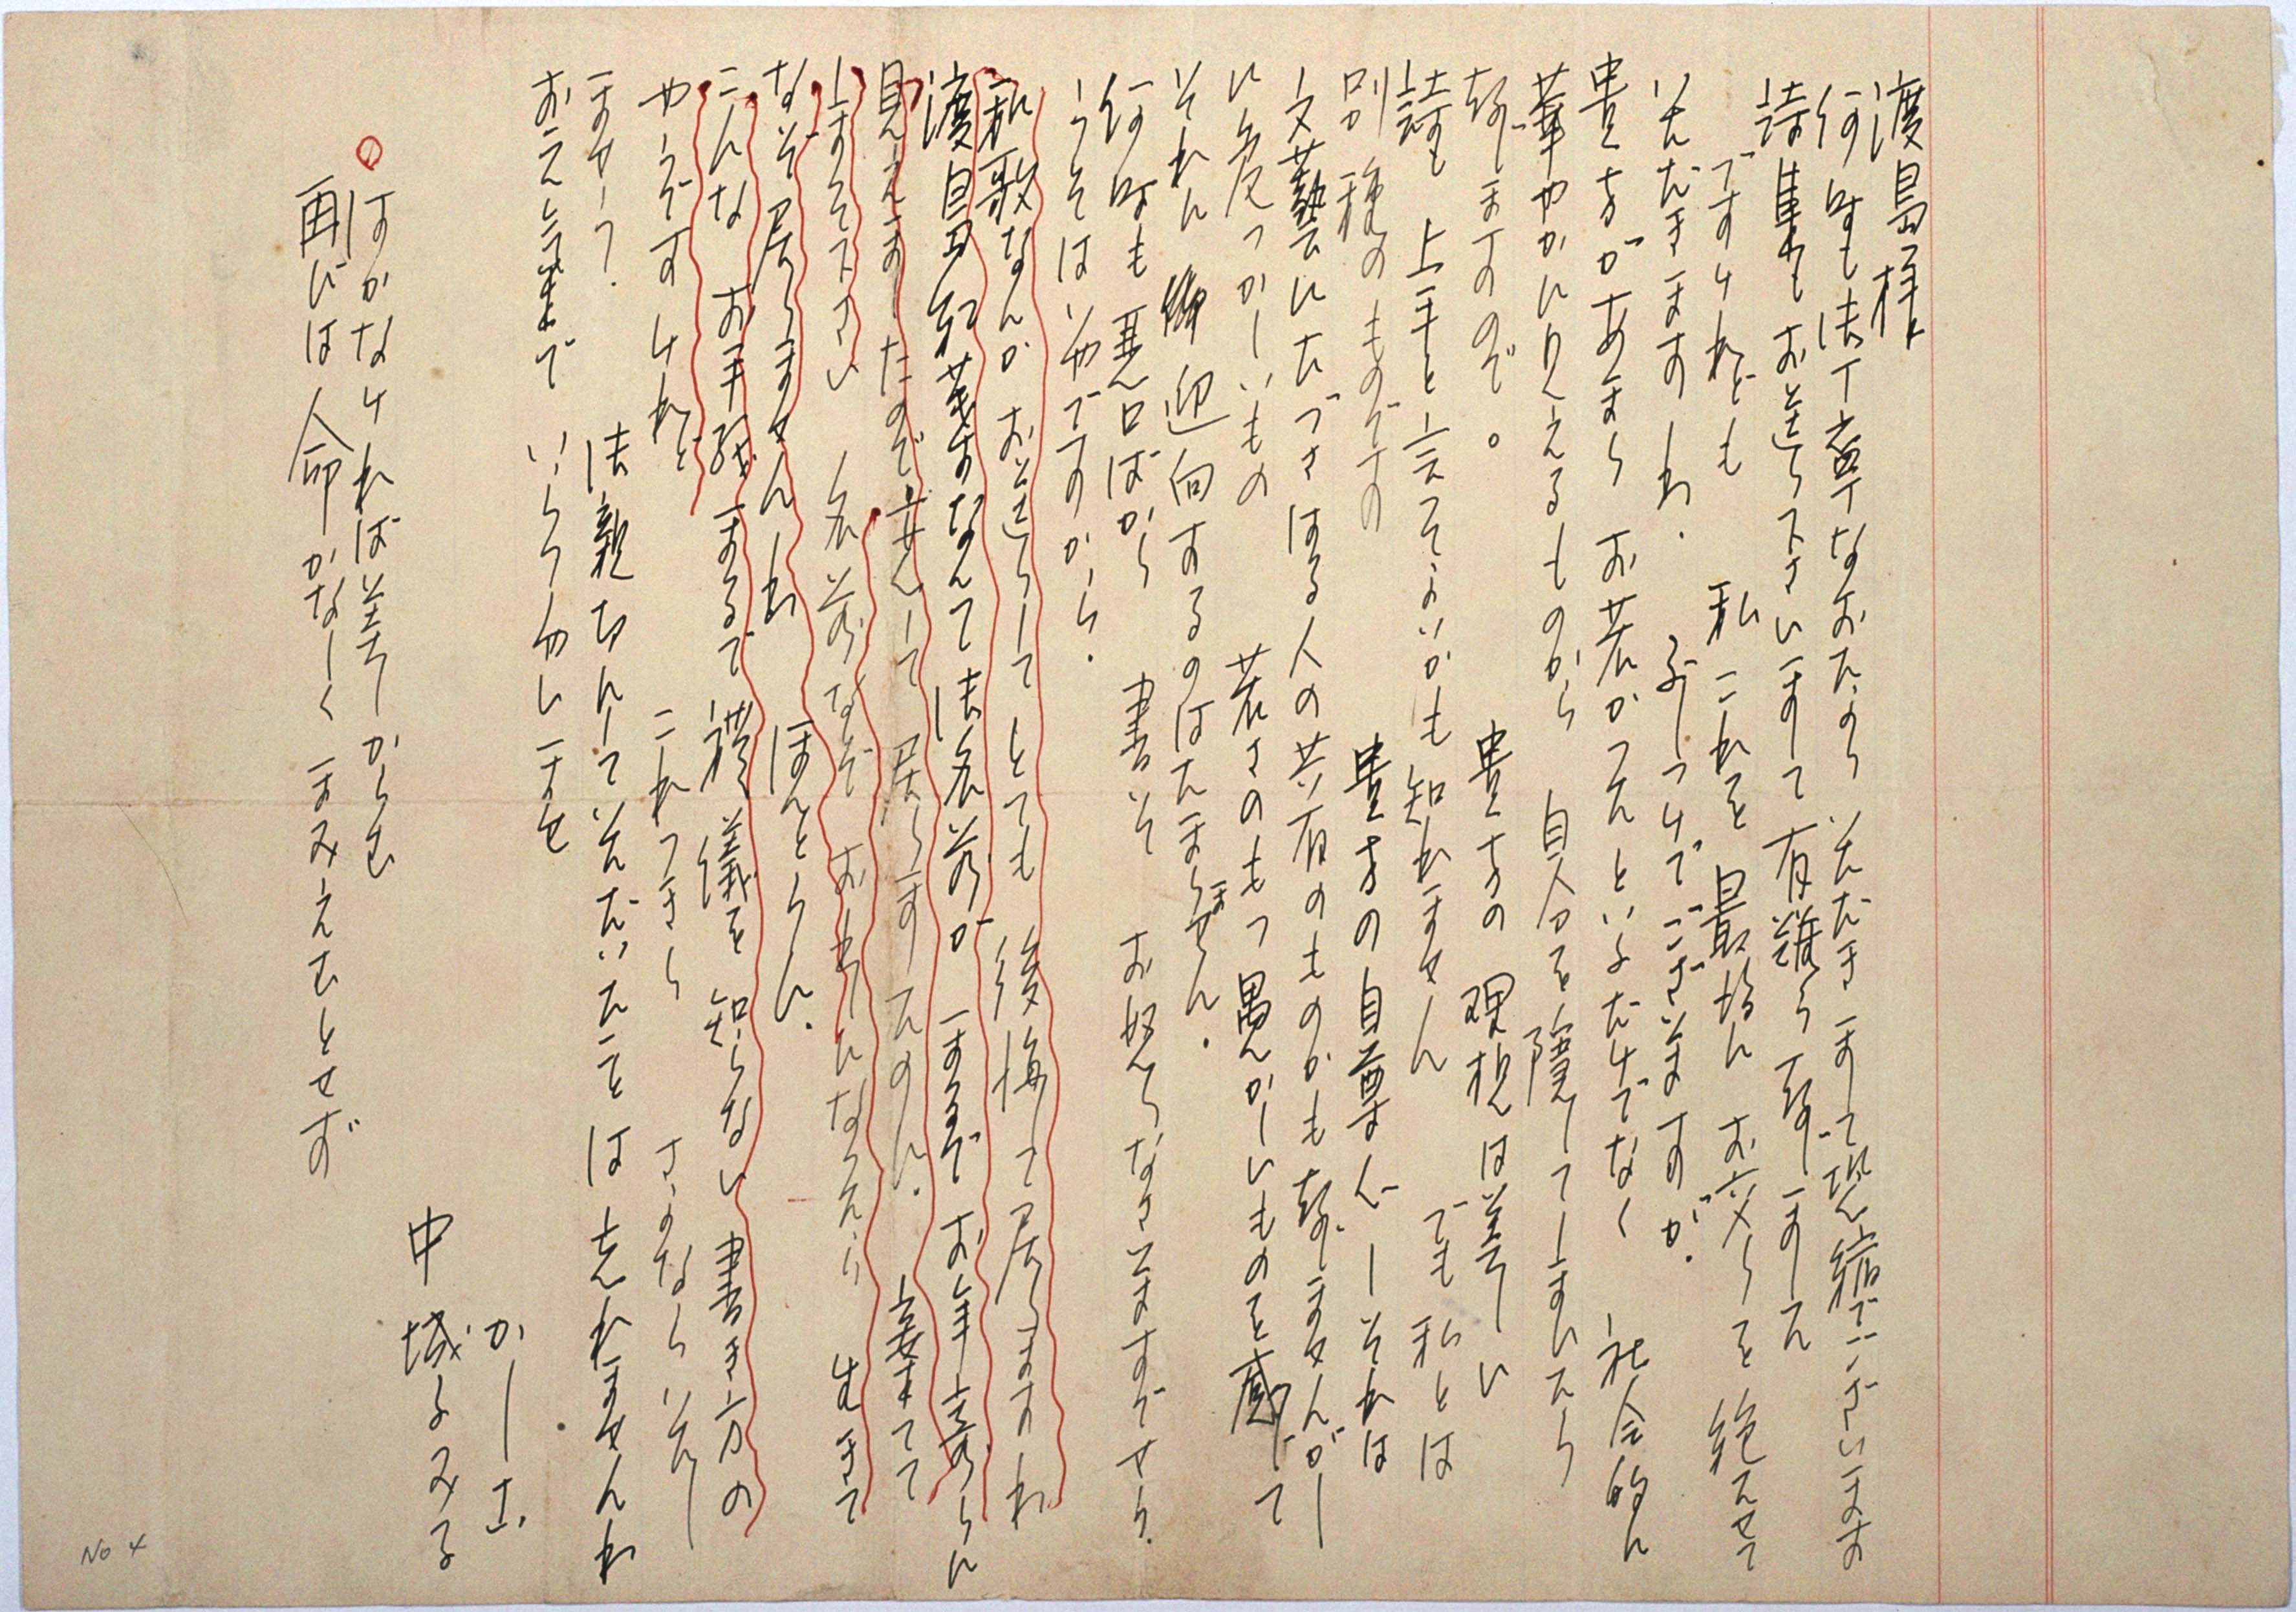 渡島様
何時も法丁寧なおたより いただきまして恐縮でございます
詩集もお送り下さいまして有難う存じました
ですけれども 私これを最後に お交りを絶えせて
いただきますわ. ぶしつけでございますが.
貴方があまり お若かったといふだけでなく 社会的に
華やかに見えるものから 自分を隠してしまひたう
存じますので。 貴方の理想は美しい
詩も 上手と言ってよいかも知れません でも私とは
別種のものですの 貴方の自尊心 ― それは
文藝にたづさはる人の共有のものかも存じませんが ―
に危っかしいもの 若さのもつ愚かしいものを感じて
それに 迎向するのはたまりません.
何時も悪口ばかり 書いて お怒りなさいますでせう.
うそはいやですから.
私歌なんか お送りして とても 後悔して居りますわ
渡島 なんて 法名前が まるで お年寄りに
見えましたので安心して 居りましたのに. 棄てて
しまって下さい 名前なぞ お判りになったら 生きて
なぞ居りませんわ ほんとうに.
こんな お手紙 まるで 禮儀を 知らない 書き方の
やうですけれど これっきり さようならいたし
ませう. 法親切にしていただいたことは忘れませんわ
お元気で いらっしやいませ
かしこ.
中城ふみ子
はかなければ美しからむ
再びは人命かなしくまみえむとせず
No 4